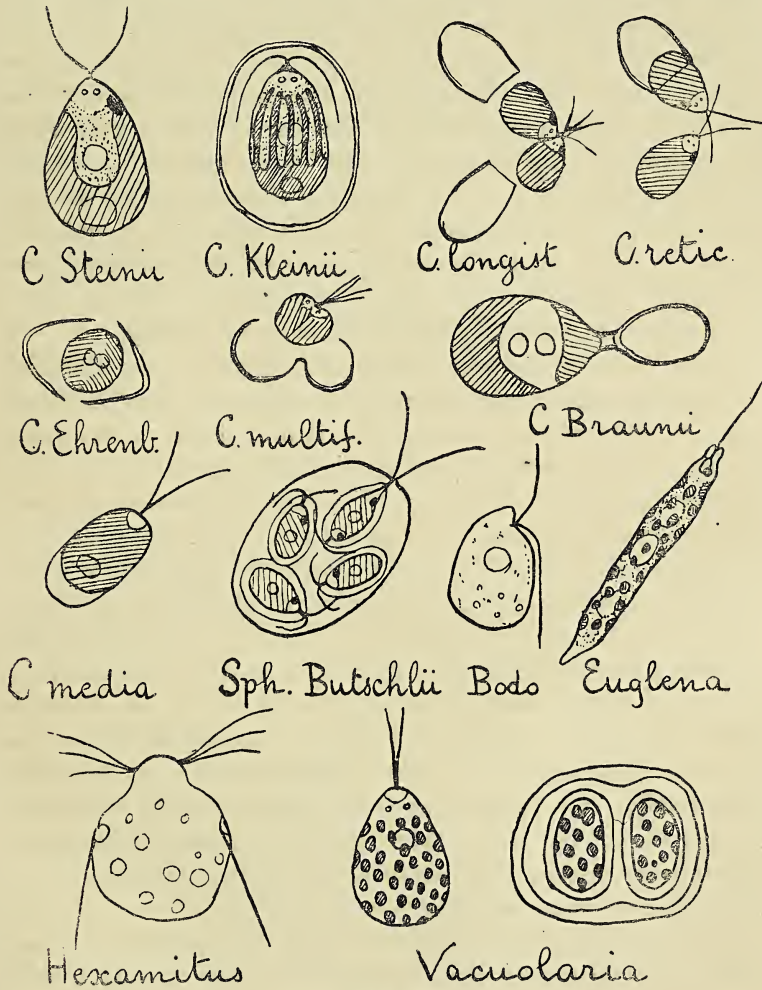 C Steinii C. Kleinii C. longist C. retic.
C. Ehrenb. C. multif. C Braunii
C media Sph. Butschlii Bodo Euglena
Hexamitus Vacuolaria